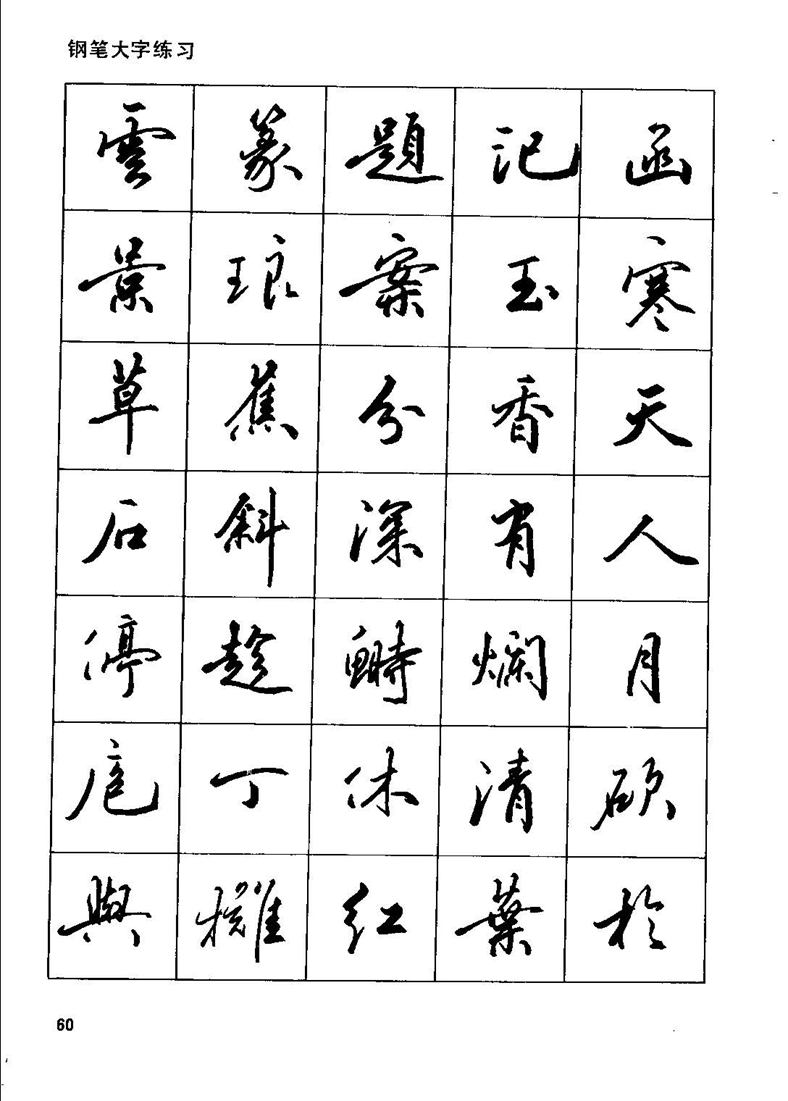 钢笔大字练习
雲篆題记函
景琅案玉寒
草蕉分香天
石斜深有人
停趁鰣爛月
扈丁休清碩
與櫂红葉於
60